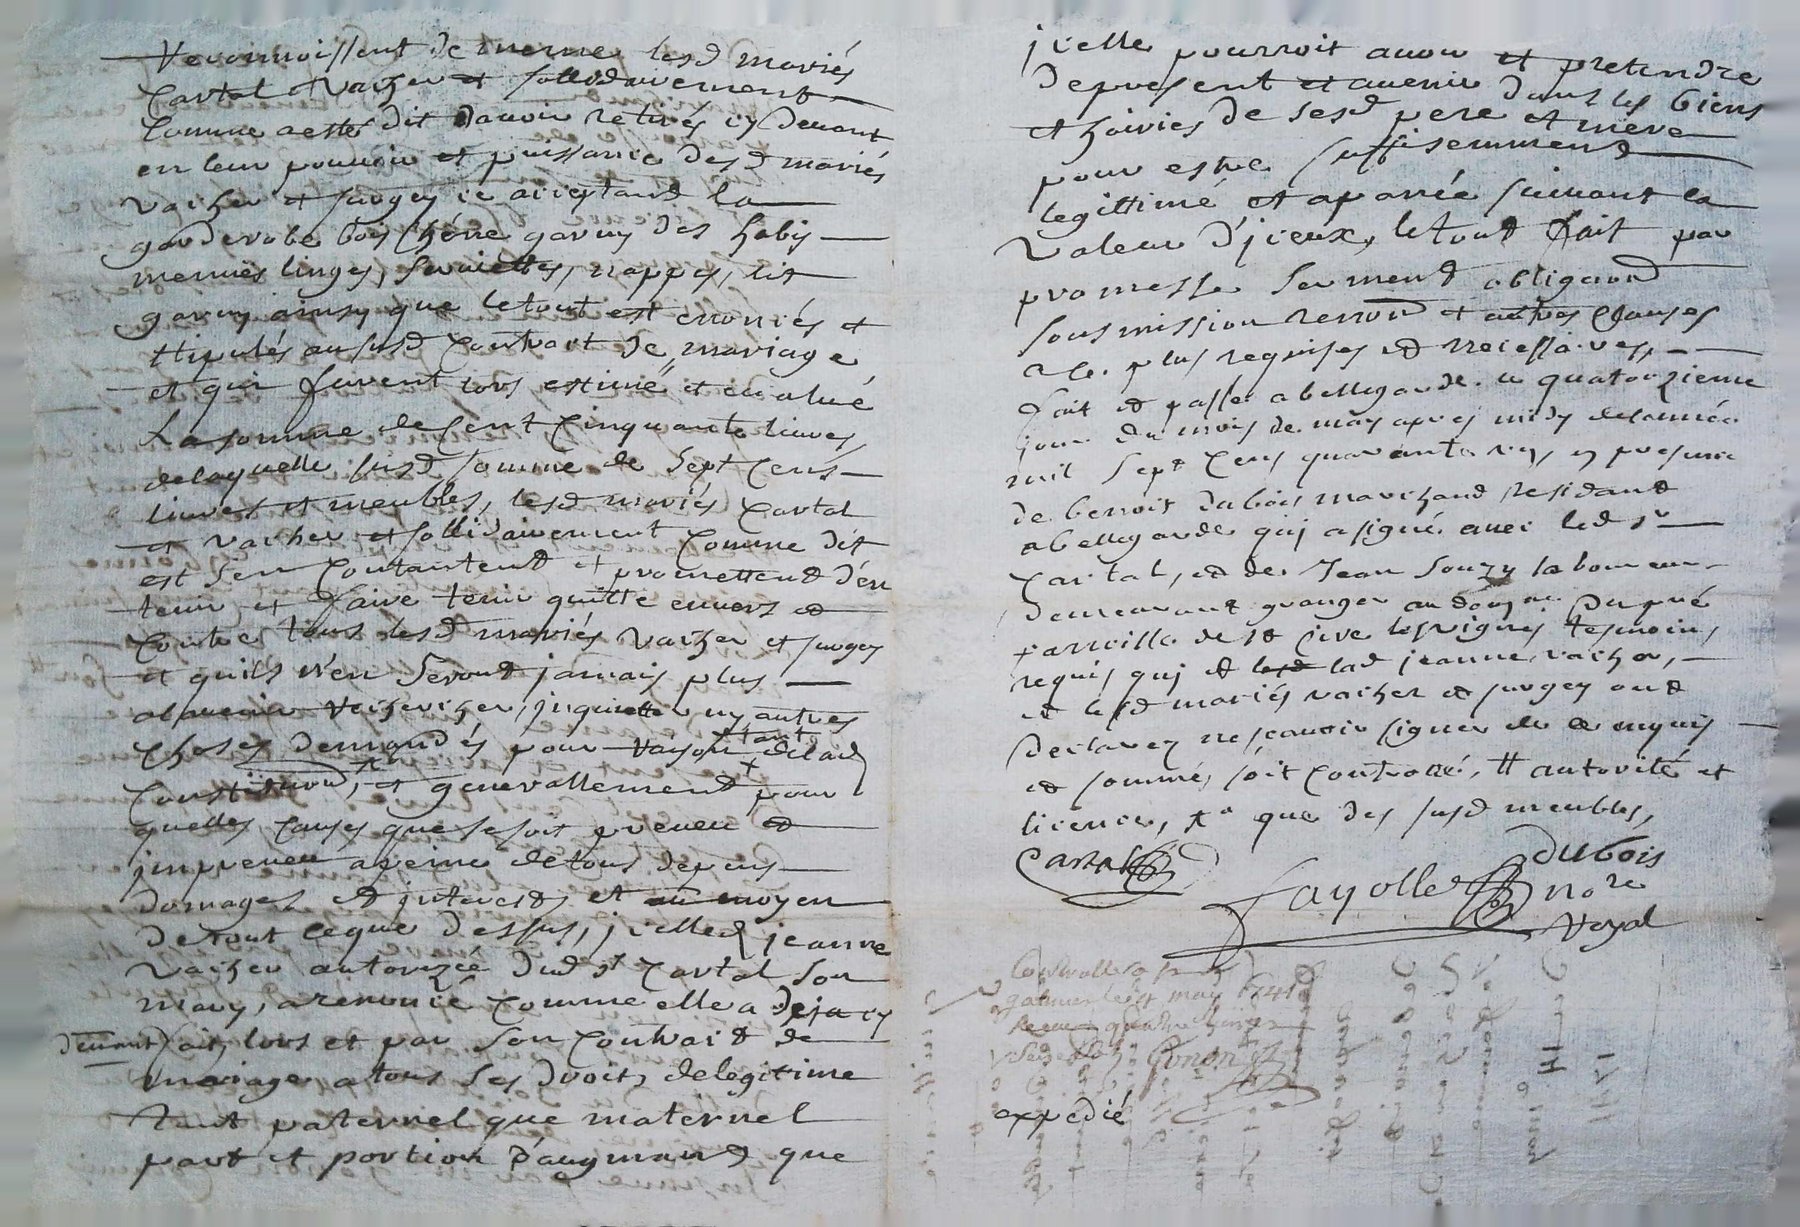 reconnoissent de meme lesd mariés
Cartal Vacher et sollidairement
Comme a esté dit d'avoir retirés cy devant
en leur pouvoir et puissance desd mariés
Vacher et surgey ce acceptand la
garderobe bois chêne garny des habis
menues linges, serviettes, nappes, lit
garny ainsy que le tout est enoncés et
stipulés au susd Contract de mariage
et qui furent lors estimé et evalué
La somme de Cent Cinquante livres
de laquelle susd somme de sept Cens
livres et meubles, lesd mariés Cartal
et vacher et sollidairement Comme dit
est s'en Contantent et promettent d'en
tenir et faire tenir quitte envers et
Contre tous lesd mariés Vacher et surgey
et quils n'en seront jamais plus
a l'avenir recherchez, inquiettez ny autres
choses demandés pour raison de lad
Constitution, et generallement pour
quelles causes que se soit preveu et
impreveu a peine de tous depens
domages et interests et au moyen
de tout ce que dessus, icelled jeanne
Vacher autorizée dud sr Cartal son
mary, a renoncé comme elle a deja cy
devant fait, lors et par son Contrait de
mariage, a tous ses droits de legitime
tant paternel que maternel
part et portion d'augmand que
jcelle pourroit avoir et pretendre
de present et avenir dans les biens
et hoiries de sesd pere et mere
pour estre suffisemmend
legittimé et aparée suivant la
valeur d'jceux, le tout fait par
promesse serment obligaond
sousmission renond et autres Clauses
a ce plus requises et necessaires,
fait et passé a bellegarde ce quatorzieme
jour du mois de may apres midy de l'année
mil sept Cens quarante un, en presence
de benoit dubois marchand residant
a bellegarde qui a signé avec led sr
Cartal, et de Jean Souzy laboureur
demeurant granger au domaine du pré
parroisse de st Cire les vignes tesmoins
requis qui et lad jeanne vacher,
et lesd mariés vacher et surgey ont
declarez ne scavoir signer de ce enquis
et sommé, soit Controllé, tt autorité et
licence, xa que des susd meubles,
Cartal
dubois
fayolle nore
Royal
Controllé a st
galmier le may 1741
Reçu quatre livres
Gonon
expedié